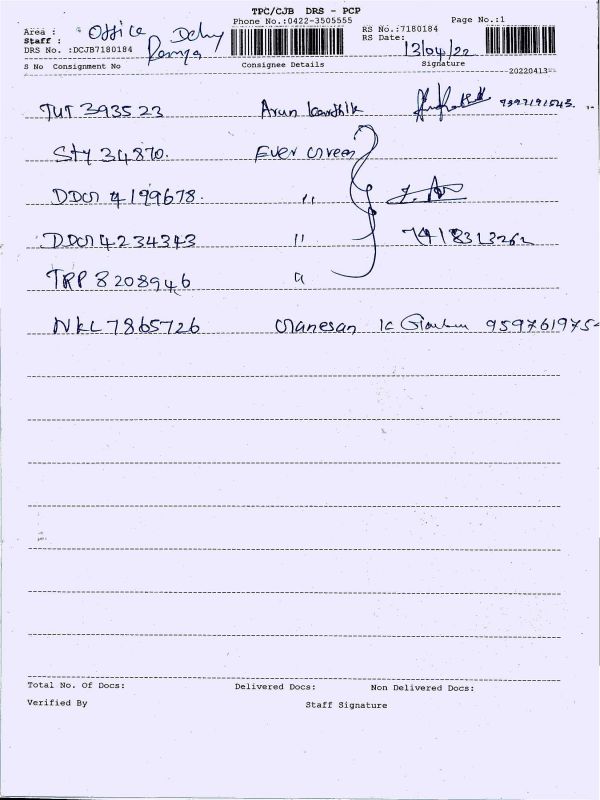 TPC/CJB DRS - PCP
Phone No.:0422-3505555
Page No.:1
Area : Office Delvy
Staff : Ramya
DRS No. :DCJB7180184
RS No.:7180184
RS Date: 13/04/22
S No Consignment No Consignee Details Signature
20220413
TUT 393523 Arun Karthik 9397191543
STY 34870. Ever Green
DDG 4199678. "
DDG 4234343 "
TRP 8208946 "
NKL 7865726 Ganesan K 959761975
Total No. Of Docs: Delivered Docs: Non Delivered Docs:
Verified By Staff Signature